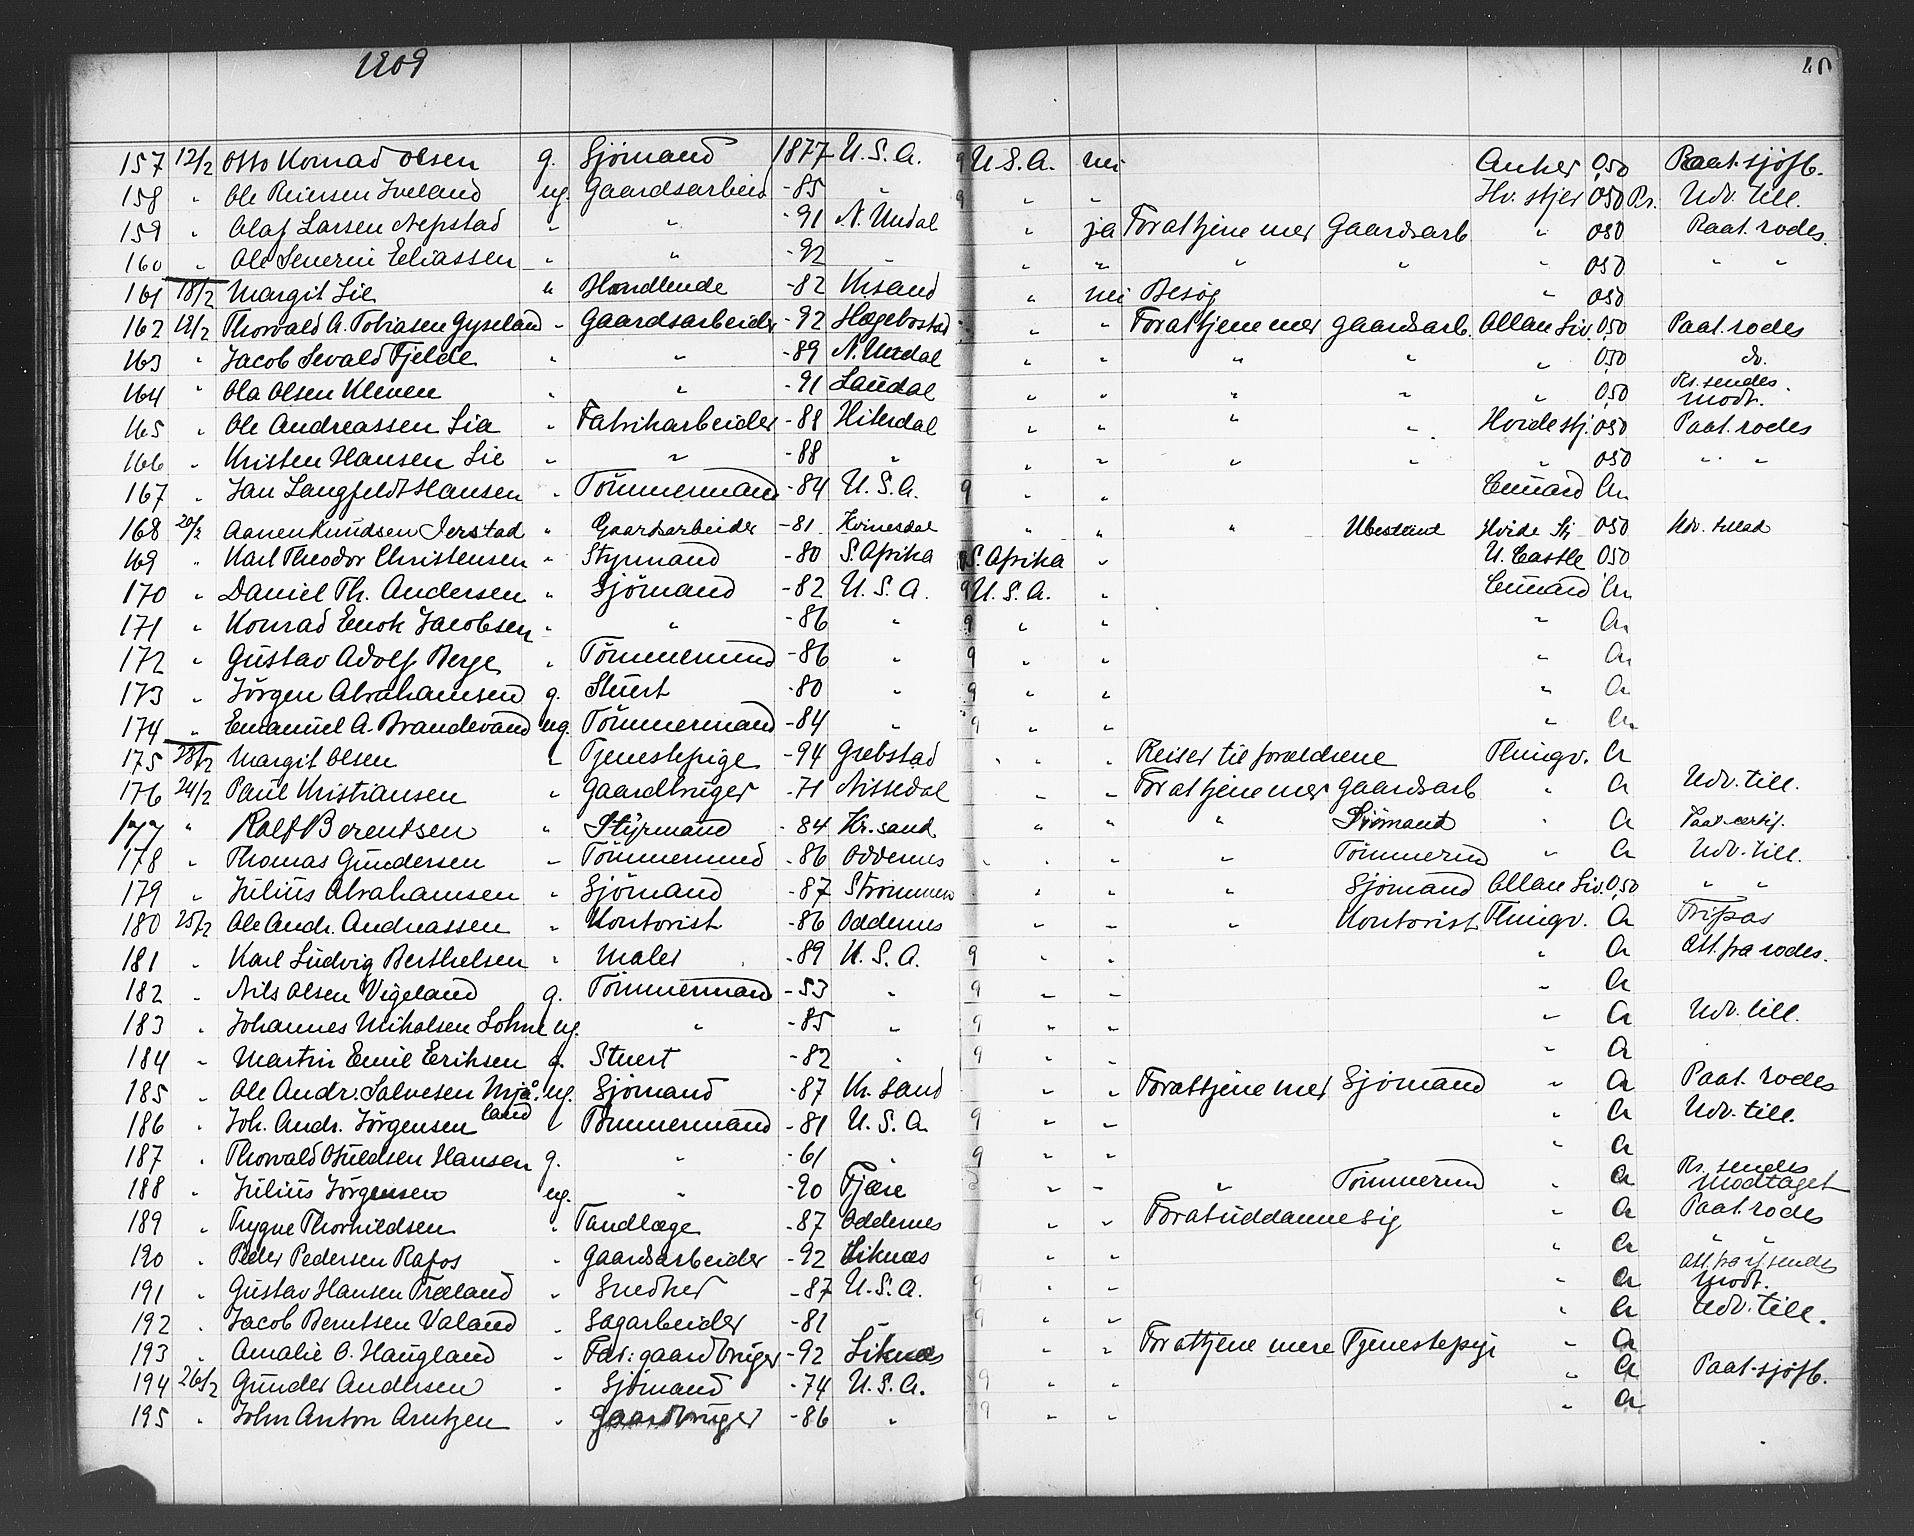 1909
40
157 12/2 Otto Konrad Olsen g. Sjömand 1877 U.S.A. 9 U.S.A. nei Anker 0,50 Paat. sjöfb.
158 " Ole Reiersen Iveland ug. Gaardsarbeid -85 " 9 " " Hv. stjer 050 Pr. Udv. till.
159 " Olaf Larsen Nepstad " " -91 N. Undal " ja Forat tjene mer Gaardsarb " 050 Paat. rodes.
160 " Ole Severin Eliassen " " -92 " " " " " " 050 " "
161 18/2 Margit Lie " Handlende -82 Krsand " nei Besög " 050
162 19/2 Thorvald A. Tobiasen Gyseland " Gaardsarbeider -92 Hægebostad " " Forat tjene mer gaardsarb. Allan Liv. 0,50 Paat. rodes
163 " Jacob Sevald Fjelde " " -89 N. Undal " " " " " 050 do.
164 " Ola Olsen Kleven " " -91 Laudal " " " " " 0,50 Rs. sendes. modt.
165 " Ole Andreassen Lia " Fabrikarbeider -88 Hiterdal " " " " Hvide stj. 050 Paat. rodes
166 " Kristen Hansen Lie " " -88 " " " " " " 050 " "
167 " Jan Langfeldt Hansen " Tömmermand -84 U.S.A. 9 " " Cunard Cr.
168 20/2 Aanen Knudsen Jerstad " Gaardsarbeider -81 Kvinesdal " " " Ubestemt Hvide Stj 050 Udv. tillad
169 " Karl Theodor Christensen " Styrmand -80 S. Afrika S. Afrika " U. Castle 050
170 " Daniel Th. Andersen " Sjömand -82 U.S.A. 9 U.S.A. " Cunard Cr.
171 " Konrad Enok Jacobsen " " -86 " 9 " " " Cr.
172 " Gustav Adolf Berge " Tömmermand -86 " 9 " " " Cr.
173 " Jörgen Abrahamsen g. Stuert -80 " 9 " " " Cr
174 " Emanuel A. Brandevand ug. Tömmermand -84 " 9 " " " Cr.
175 23/2 Margit Olsen " Tjenestepige -94 Grebstad " " Reiser til forældrene Thingv. Cr
176 24/2 Paul Kristiansen " Gaardbruger -71 Nissedal " " Forat tjene mer gaardsarb " Cr Udv. till.
177 " Rolf Berentsen " Styrmand -84 Kr. sand " " " Sjömand " Cr Paat. certif.
178 " Thomas Gundersen " Tömmermand -86 Oddernes " " " Tömmermd " Cr Udv. till.
179 " Julius Abrahamsen " Sjömand -87 Strömmen " " " Sjömand Allan Liv. 0,50 " "
180 25/2 Ole Andr. Andreassen " Kontorist -86 Oddernes " " " Kontorist Thingv. Cr Fripas
181 " Karl Ludvig Berthelsen " Maler -89 U.S.A. 9 " " " Cr Att. fra rodes.
182 " Nils Olsen Vigeland g. Tömmermand -53 " 9 " " " Cr
183 " Johannes Mikalsen Lohne ug. " -85 " 9 " " " Cr Udv. till.
184 " Martin Emil Eriksen g. Stuert -82 " 9 " " " Cr
185 " Ole Andr. Salvesen Mjåland ug. Sjömand -87 Kr. sand " " Forat tjene mer Sjömand " Cr Paat. rodes
186 " Joh. Andr. Jörgensen " Tömmermand -81 U.S.A. 9 " " " Cr Udv. till.
187 " Thorvald Hansen g. " -61 " 9 " " " Cr
188 " Julius Jörgensen ug. " -90 Fjære " " " Tömmermd " Cr Rs. sendes modtaget
189 " Trygve Thorkildsen " Tandlæge -87 Oddernes " " Forat uddanne sig Cr Paat. rodes
190 " Peder Pedersen Rafos " Gaardsarbeider -92 Liknes " " " Cr " "
191 " Gustav Hansen Træland " Snedker -87 U.S.A. 9 " " " Cr Att. fra sendes modt.
192 " Jacob Berntsen Valand " Sagarbeider -81 " 9 " " " Cr Udv. till.
193 " Amalie O. Haugland " Far: gaardbruger -92 Liknes " " Forat tjene mere Tjenestepige " Cr
194 26/2 Gunder Andersen " Sjömand -74 U.S.A. 9 " " " Cr Paat. sjöfb.
195 " John Anton Arntzen " Gaardbruger -86 " 9 " " " Cr